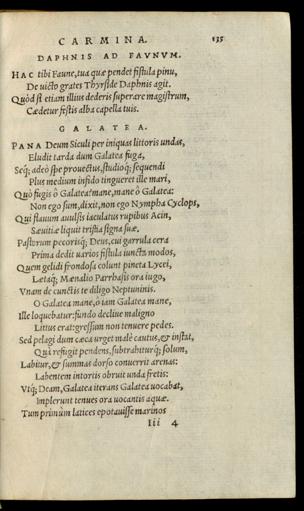 CARMINA. 135
DAPHNIS AD FAVNVM.
HAC tibi Faune, tua quæ pendet fistula pinu,
De uicto grates Thyrside Daphnis agit.
Quòd si etiam illius dederis superare magistrum,
Cædetur festis alba capella tuis.
GALATEA.
PANA Deum Siculi per iniquas littoris undas,
Eludit tarda dum Galatea fuga,
Seq; adeò spe prouectus, studioq; sequendi
Plus medium infido tingueret ille mari,
Quò fugis ô Galatea? mane, mane ô Galatea:
Non ego sum, dixit, non ego Nympha Cyclops,
Qui flauum auulsis iaculatus rupibus Acin,
Sæuitiæ liquit tristia signa suæ,
Pastorum pecorisq; Deus, cui garrula cera
Prima dedit uarios fistula iuncta modos,
Quem gelidi frondosa colunt pineta Lycei,
Lætaq; Mænalio Parrhasis ora iugo,
Vnam de cunctis te diligo Neptuninis.
O Galatea mane, ô iam Galatea mane,
Ille loquebatur: fundo decliue maligno
Littus erat: gressum non tenuere pedes.
Sed pelagi dum cæca urget malè cautus, & instat,
Qui refugit pendens, subtrahiturq; solum,
Labitur, & summas dorso conuerrit arenas:
Labentem intortis obruit unda fretis:
Vtq; Deam, Galatea iterans Galatea uocabat,
Implerunt tenues ora uocantis aquæ.
Tum primùm latices epotauisse marinos
Iii 4